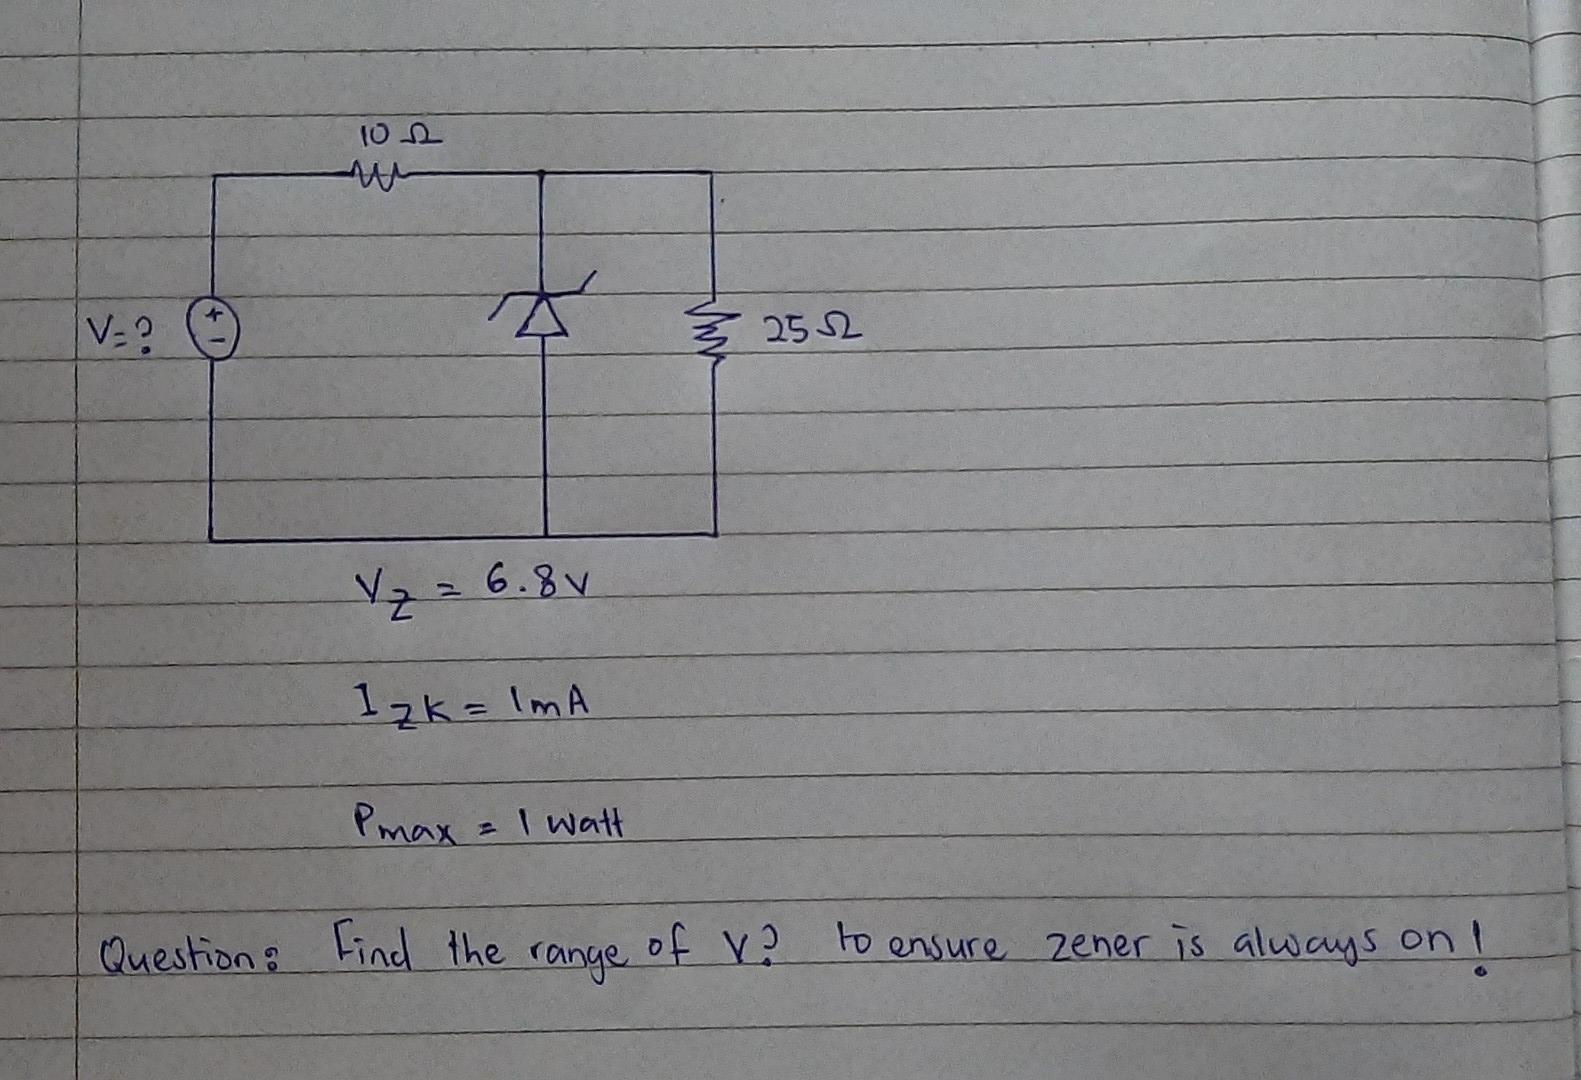 10 Ω
V=?
+
-
25Ω
Vz = 6.8v
IzK = 1mA
Pmax = 1 watt
Question: Find the range of V? to ensure zener is always on!